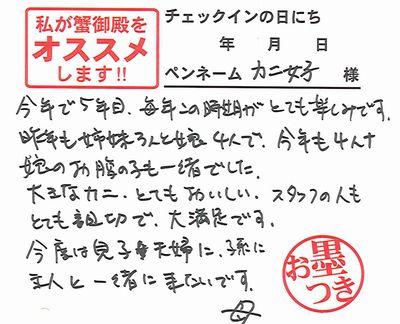 私が蟹御殿を
オススメ
します!!
チェックインの日にち
年 月 日
ペンネーム カニ女子 様
今年で5年目、毎年この時期がとても楽しみです。
昨年も姉妹3人と娘4人で、今年も4人+
娘のお腹の子も一緒でした。
大きなカニ、とてもおいしい、スタッフの人も
とても親切で、大満足です。
今度は息子夫婦に、孫に
主人と一緒に来たいです。
母
お墨つき